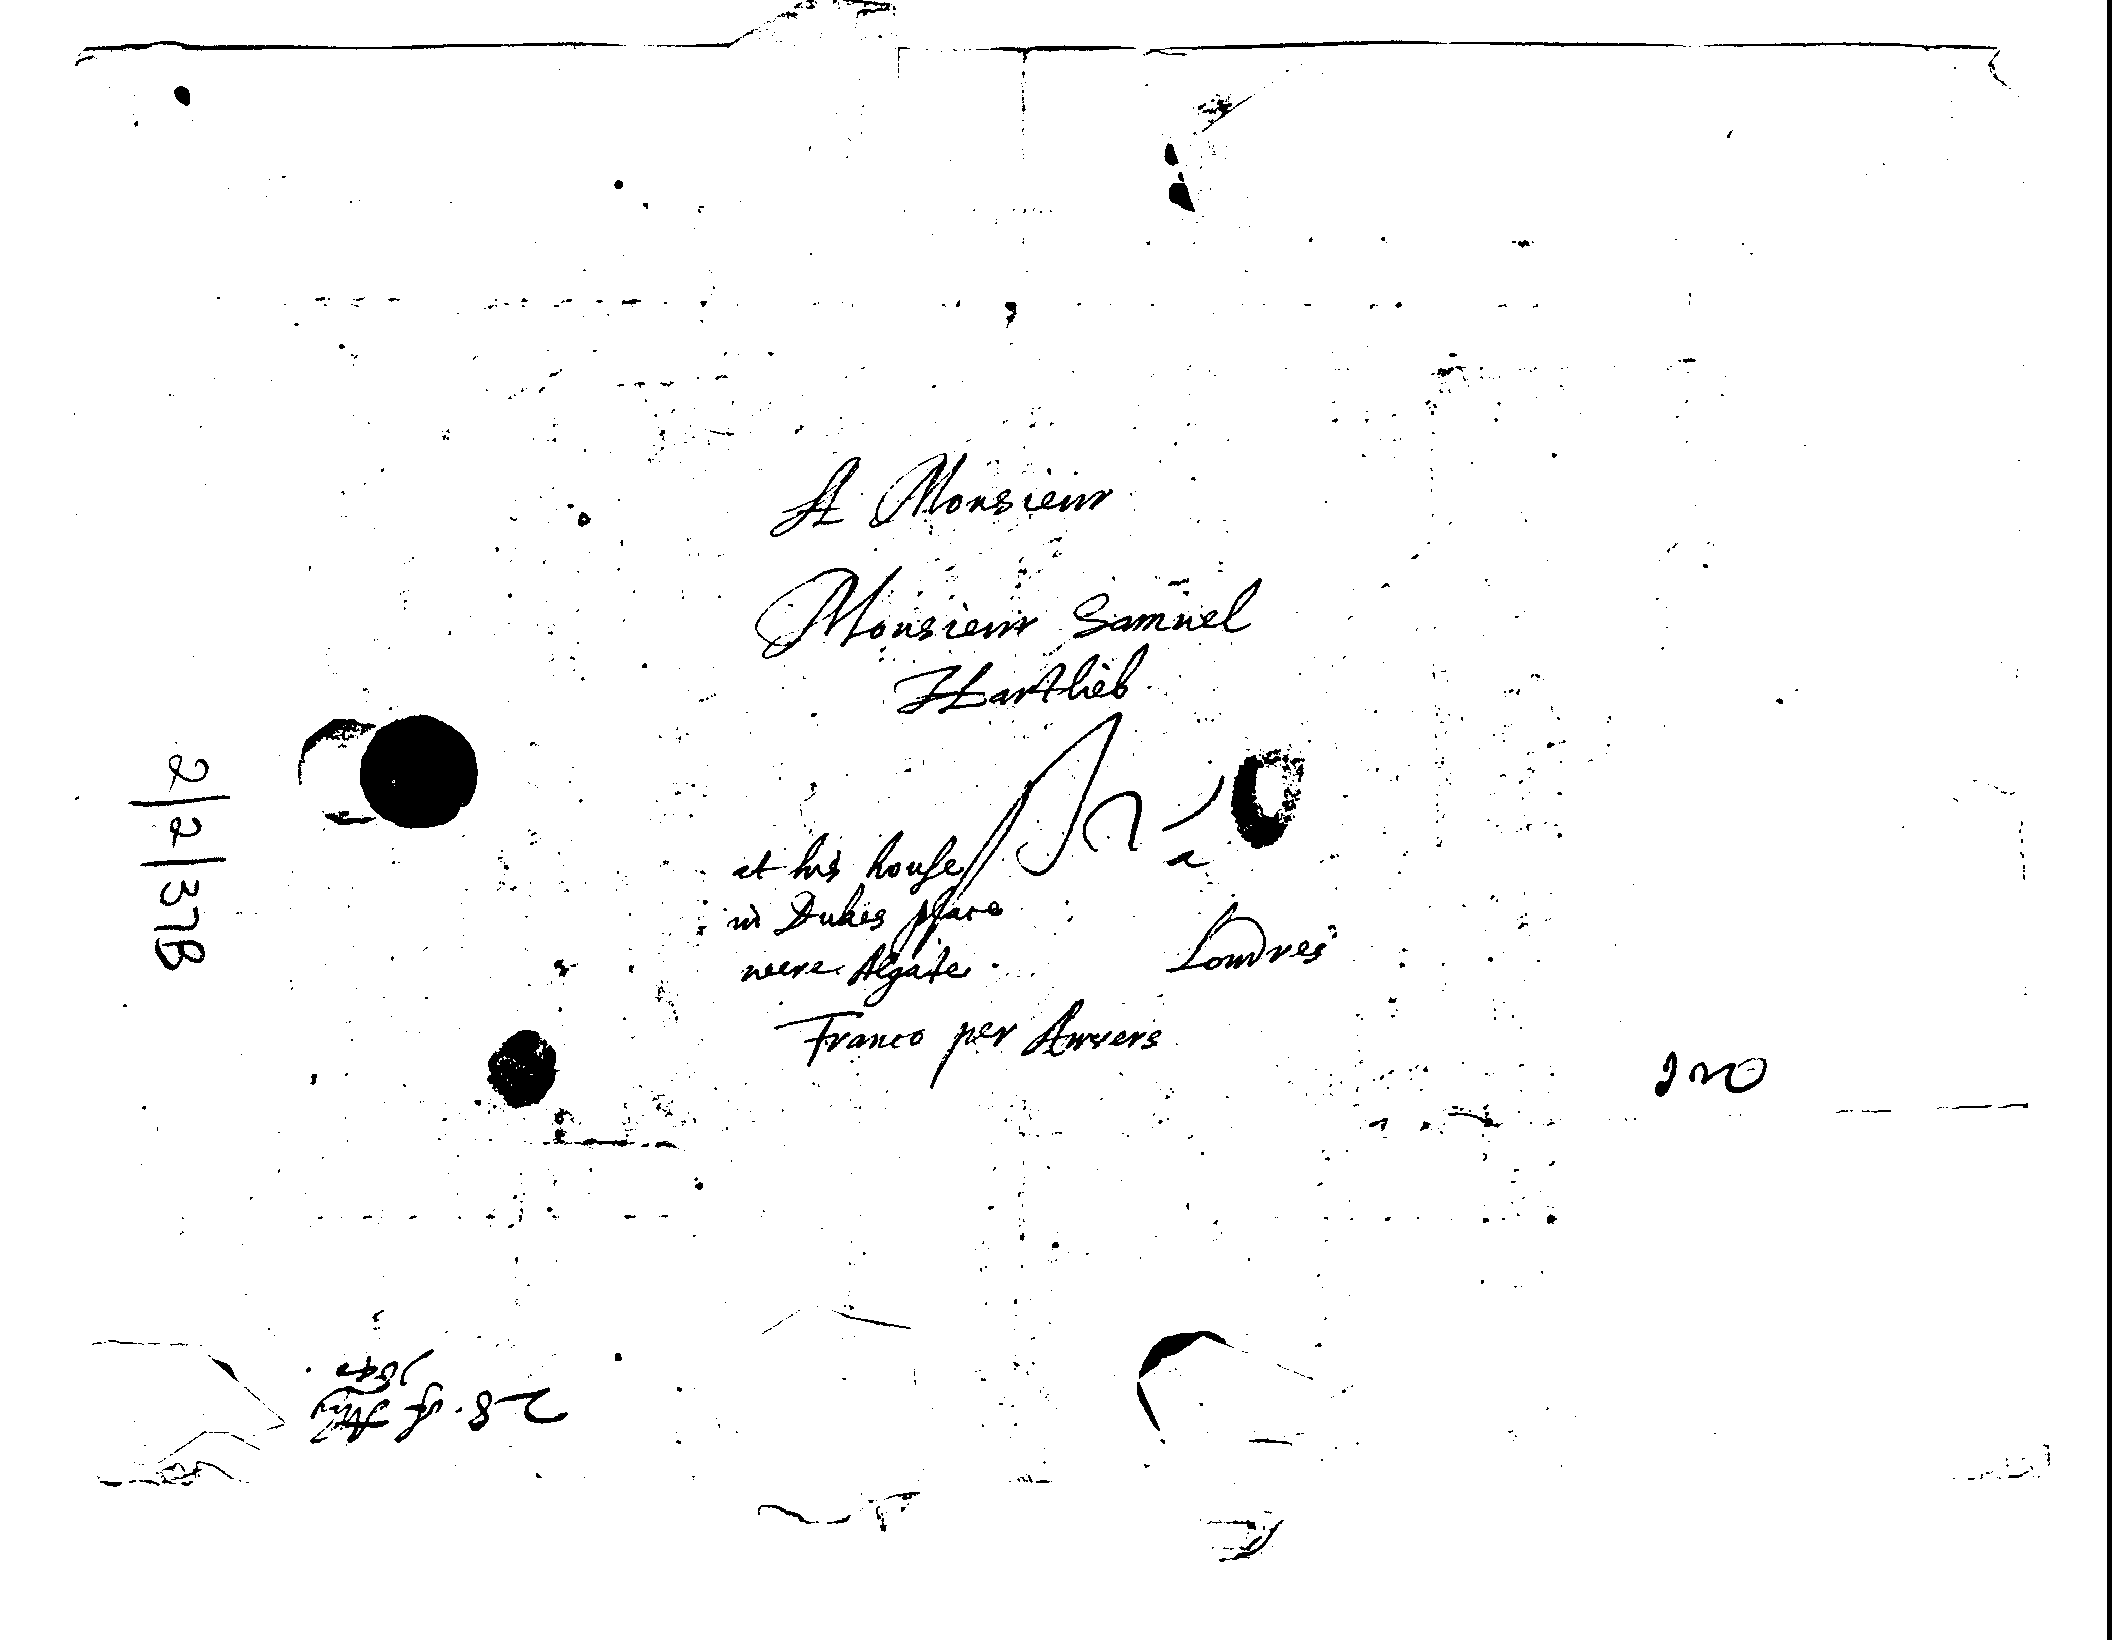 A Monsieur
Monsieur Samuel
Hartlieb
at his house
in Dukes place
neere Algate
a
Londres
Franco per Anvers
2/2/37B
28.